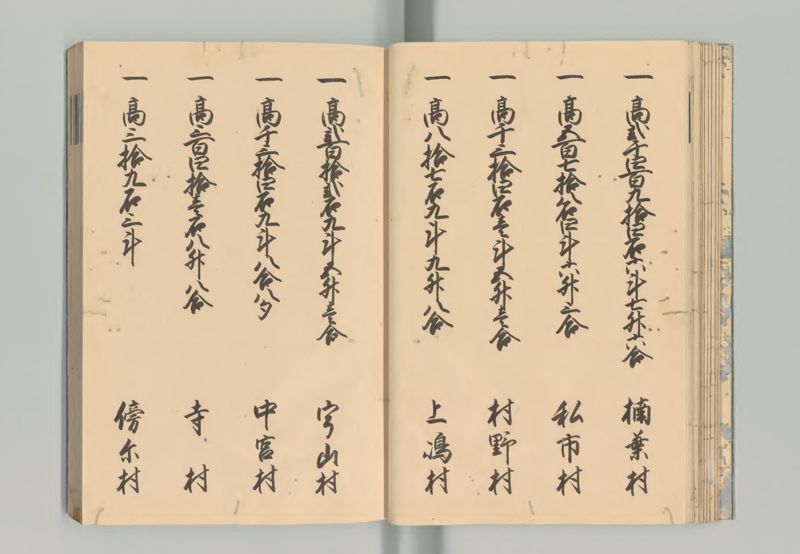 一 高弐千四百九拾四石六斗七升六合 楠葉村
一 高五百七拾八石四斗六升三合 私市村
一 高千三拾四石壱斗五升壱合 村野村
一 高八拾七石九斗九升八合 上嶋村
一 高弐百拾弐石九斗五升壱合 宇山村
一 高千三拾四石九斗八合八夕 中宮村
一 高三百四拾壱石八升八合 寺村
一 高三拾九石三斗 傍尓村